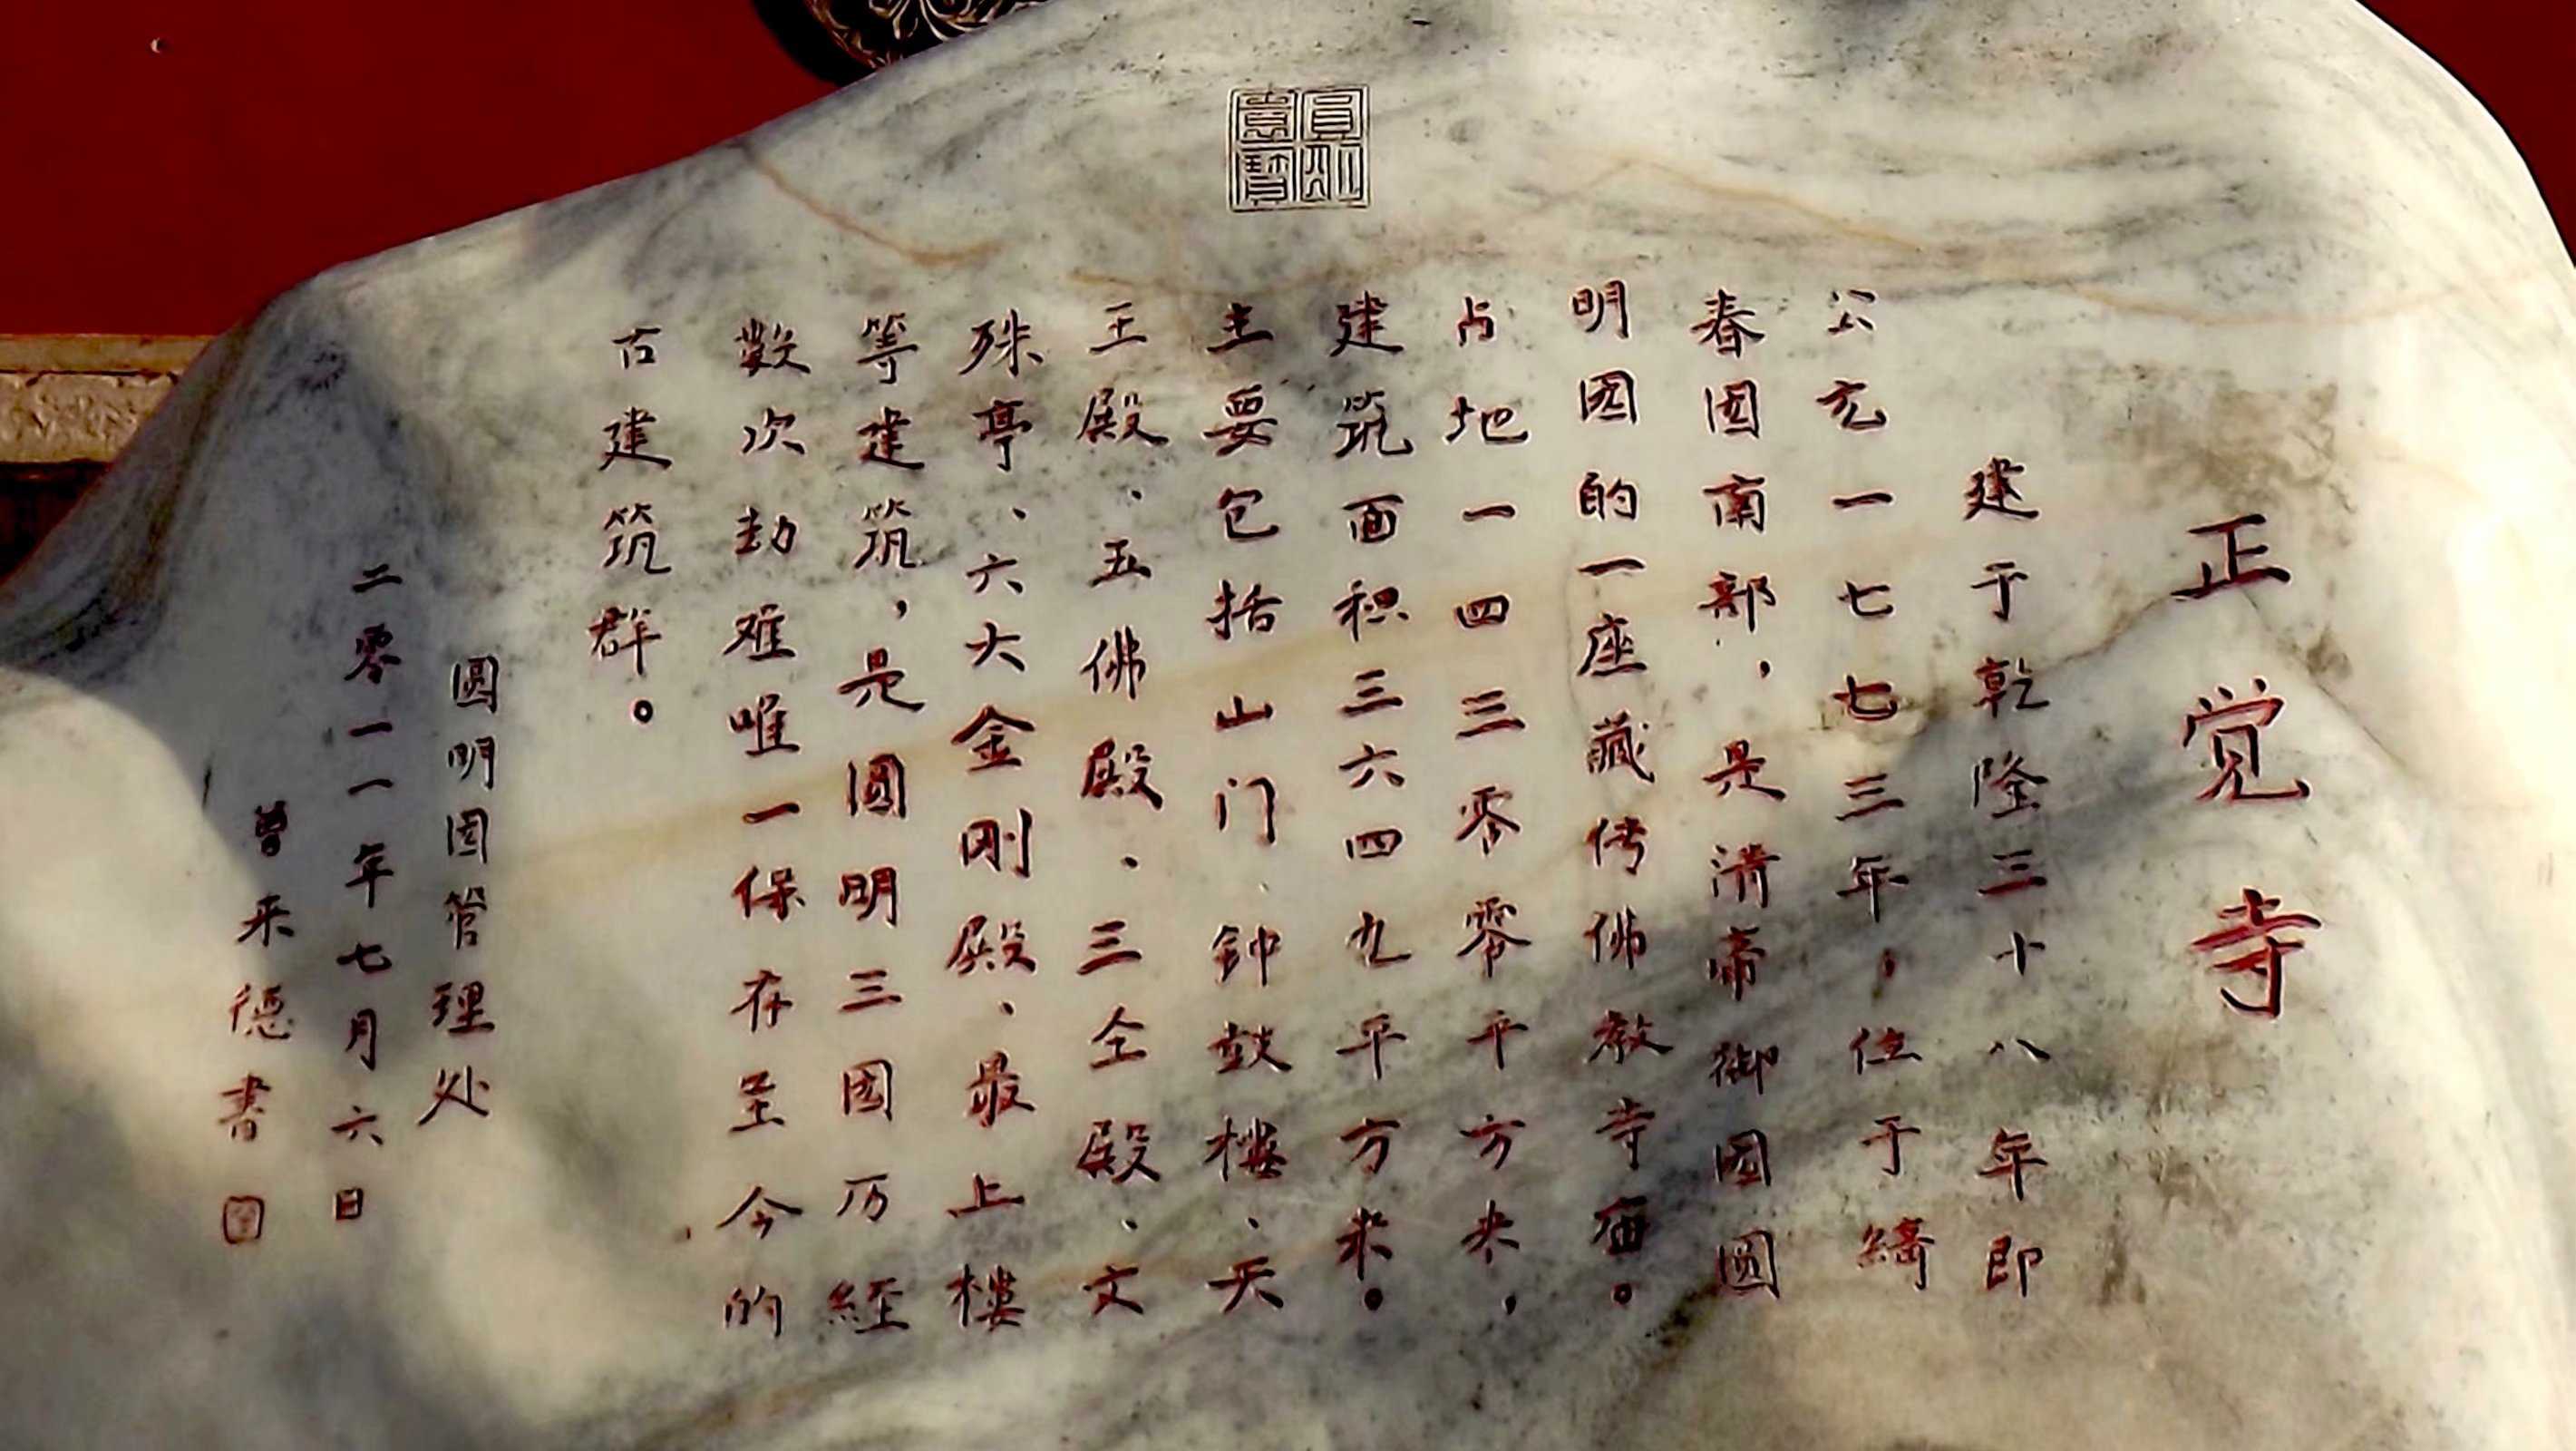 正觉寺
建于乾隆三十八年即
公元一七七三年，位于綺
春园南部，是清帝御园圆
明园的一座藏传佛教寺庙。
占地一四三零零平方米，
建筑面积三六四九平方米。
主要包括山门、钟鼓楼、天
王殿、五佛殿、三全殿、文
殊亭、六大金刚殿、最上楼
等建筑，是圆明三园历經
数次劫难唯一保存至今的
古建筑群。
圆明园管理处
二零一一年七月六日
曾来德書